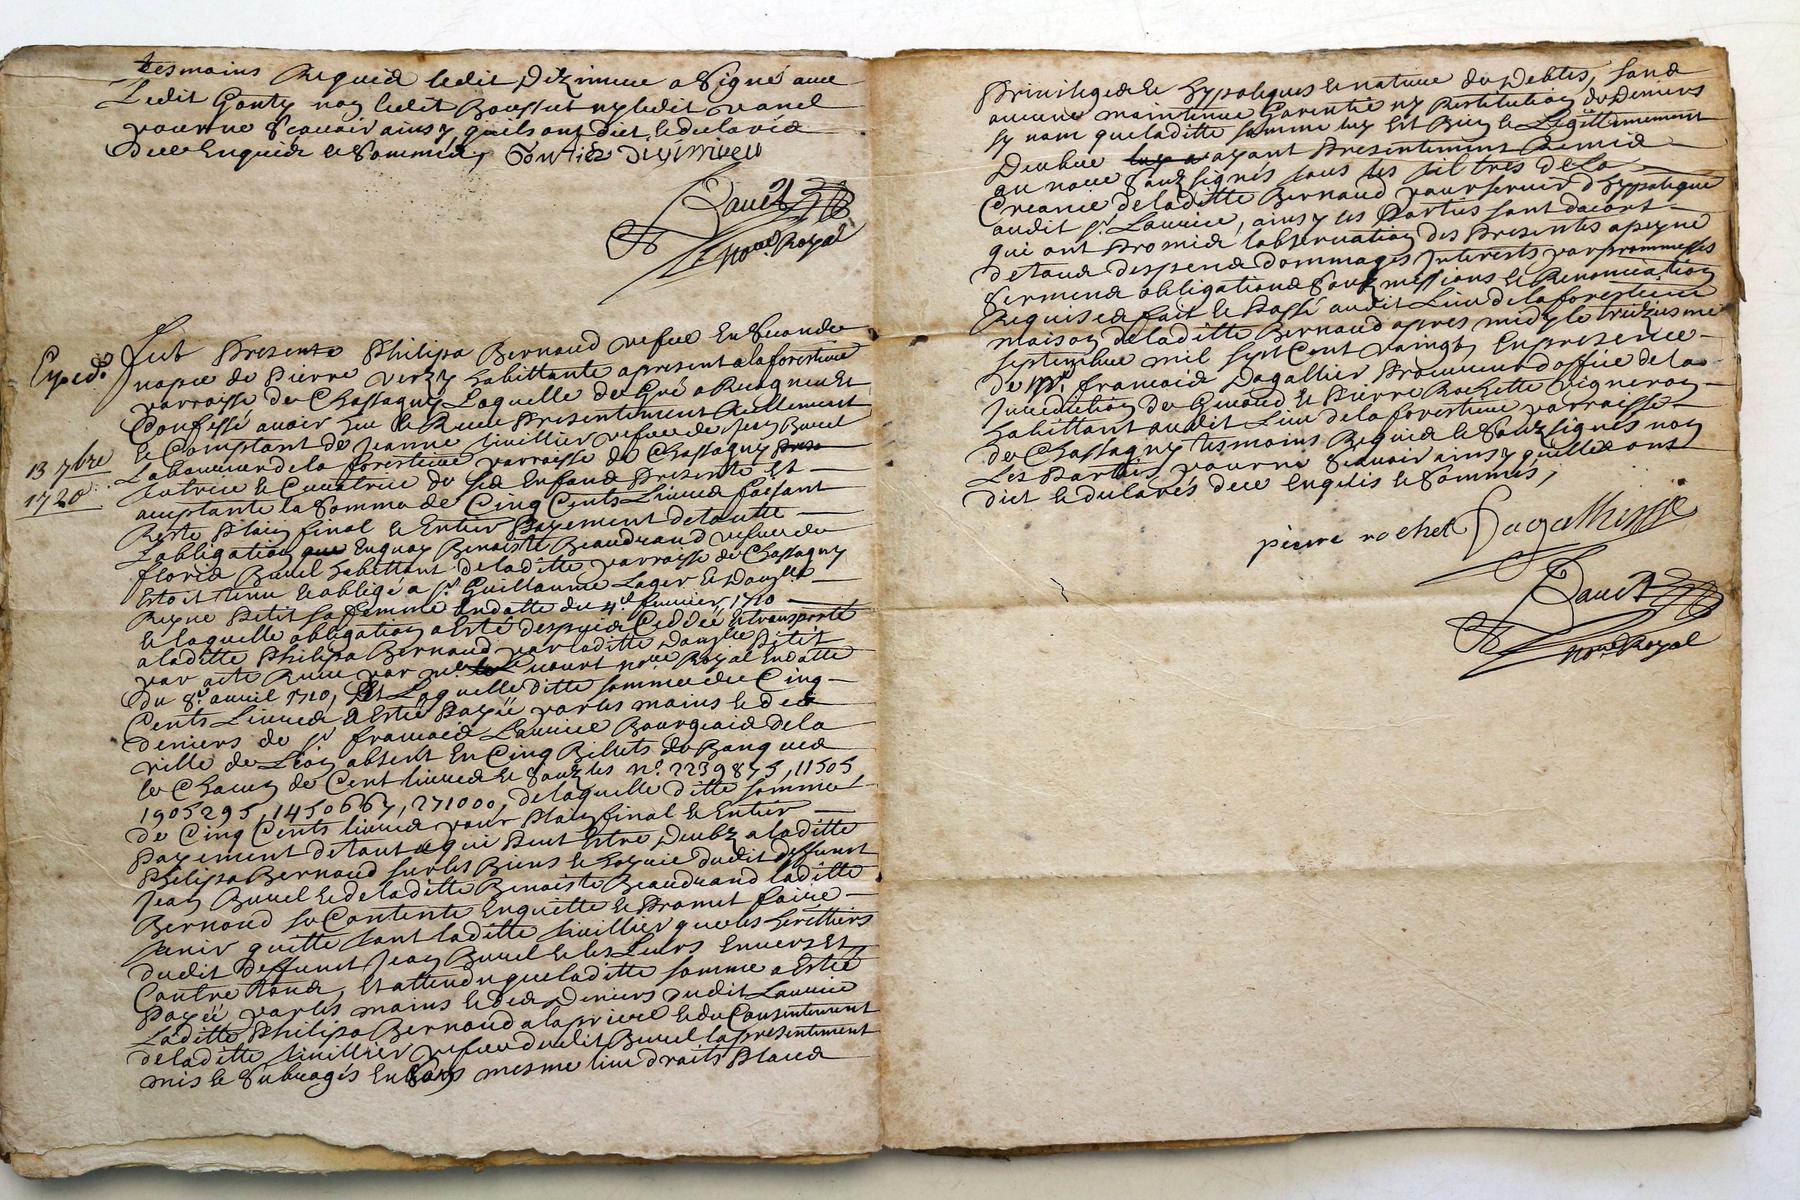 tesmoins Requis ledit Dizimieu a Signé avec
Ledit Gontz non ledit Bousset ny ledit
pour ne Scavoir ainsy quils ont dict et declaré
dece Enquis et Sommés,
Dauet
no.re Royal
Exped.é
13 7bre
1720
Fut Presente Philipa Bernaud vefue En Seconde
nopce de Pierre Verzy habittante a present a la forestiere
parroisse de Chassagny Laquelle de Gré a Recogneu Et
Confessé avoir heu et Receu Presentement Reellement
et Comptant de Jeanne Cuillier vefue de Jean Buuel
Laboureur de la forestiere parroisse de Chassagny
tutrice et Curatrice de Ses Enfans Presente Et
acceptante la Somme de Cinq Cents Livres faisant
Reste Plain final et Entier Payement de toutte
Lobligation que Benoiste Beaudrand vefue de
floris Buuel habittant de laditte parroisse de Chassagny
Estoit tenu et obligé a s.r Guillaume Lager et Dam.lle
Reyne Petit sa femme En datte du 4.e feurier 1710
et laquelle obligation a Esté despuis Ceddée et transporté
a laditte Philipa Bernaud par laditte dam.lle Petit
par acte Receu par m.e no.re Royal En datte
du 8.e avril 1710, Et Laquelle ditte somme de Cinq
Cents Livres a Esté Payée par les mains et des
deniers de s.r francois Laurice Bourgeois de la
ville de Lion absent En Cinq Billets de Banques
le Chacun de Cent livres et Soubz les n.o 2239875, 11505,
1905295, 1450667, 271000, de laquelle ditte somme
de Cinq Cents livres pour Plain final et Entier
Payement de tout ce qui Peut Estre Deubz a laditte
Philipa Bernaud sur les Biens et hoyrie dudit deffunct
Jean Buuel et de laditte Benoiste Beaudrand laditte
Bernaud se Contente En quitte et Promet faire
tenir quitte tant laditte Cuillier que les heritiers
dudit deffunct Jean Buuel et les Leurs Envers Et
Contre tous, Et attendu que laditte somme a Esté
Payée par les mains et des Deniers dudit Laurice
Laditte Philipa Bernaud a la priere et du Consentement
de laditte Cuillier vefue dudit Buuel la presentement
mis et Subrogés En Son mesme lieu droits Place
Privilege et hypoteques et nature de Debtes, sans
aucune maintenue Garentie ny Restitution de Deniers
sy non que laditte somme luy Est Bien et Legittimement
Deubue ayant Presentement Remis
au no.re Soubsignés tous les tiltres de la
Creance de laditte Bernaud pour servir dhypoteque
audit s.r Laurice, ainsy les Parties sont dacort
qui ont Promis lobservation des Presentes a peyne
de tous despens dommages Interests par prommesses
Serment obligations Soubmissions et Renonciation
Requises fait et Passé audit Lieu de la forestiere
maison de laditte Bernaud apres midy le treiziesme
septembre mil sept Cent vaingt En presence
de m.e francois Dagallier Procureur doffice de la
Juridiction de et Pierre Rochette vigneron
habittant audit Lieu de la forestiere parroisse
de Chassagny tesmoins Requis et Soubsignés non
Les Parties pour ne Scavoir ainsy quelles ont
dict et declarés dece Enquis et Sommés,
pierre rochet Dagallier
Dauet
no.re Royal